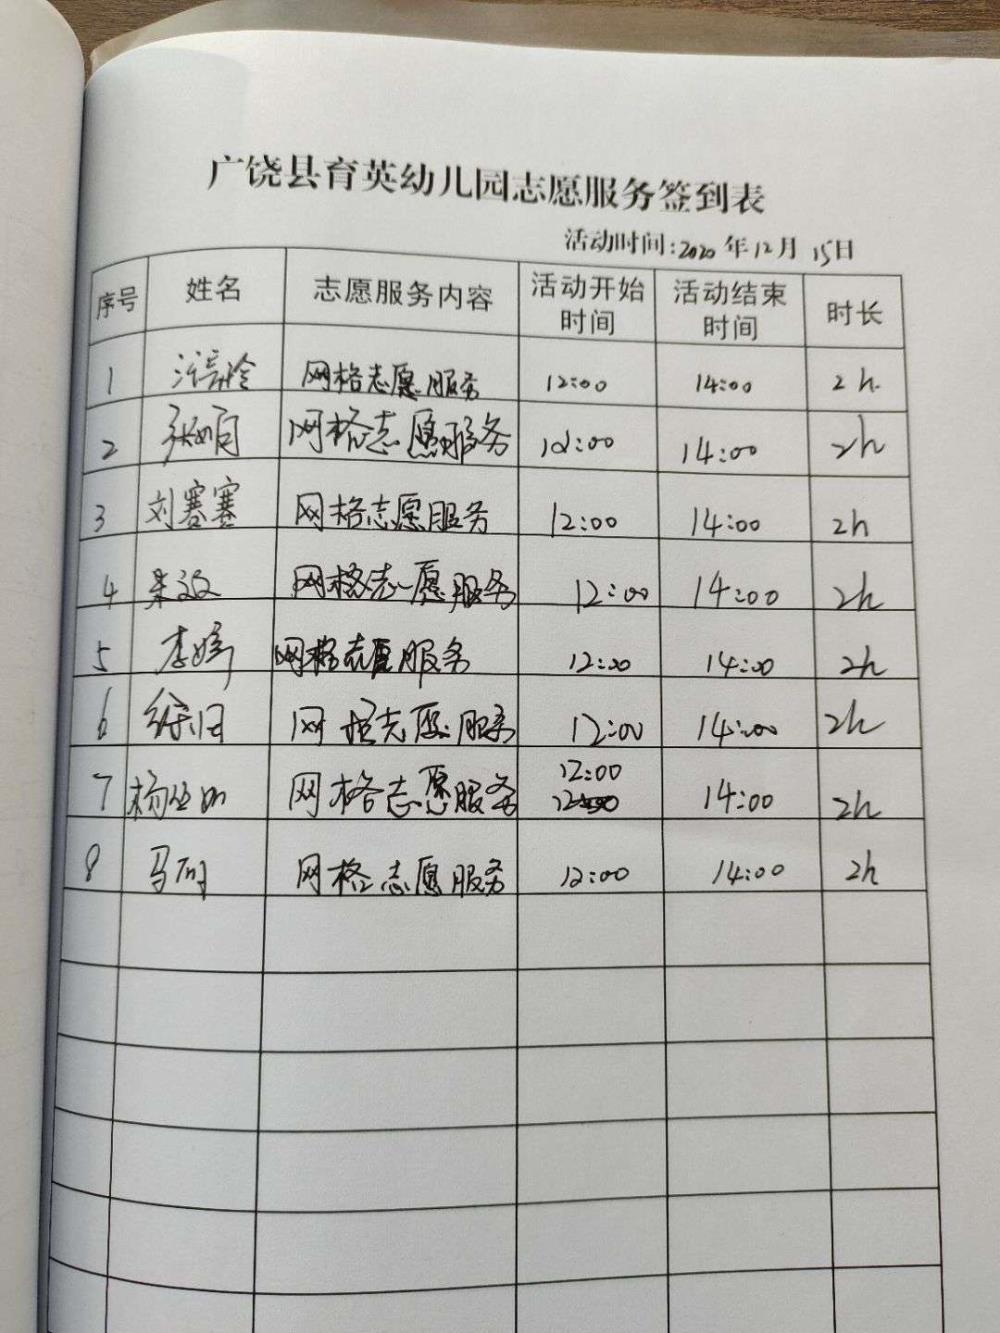 广饶县育英幼儿园志愿服务签到表
活动时间:2020年12月15日
序号 姓名 志愿服务内容 活动开始时间 活动结束时间 时长
1 网格志愿服务 12:00 14:00 2h
2 网格志愿服务 12:00 14:00 2h
3 刘赛赛 网格志愿服务 12:00 14:00 2h
4 网格志愿服务 12:00 14:00 2h
5 李婷 网格志愿服务 12:00 14:00 2h
6 网格志愿服务 12:00 14:00 2h
7 网格志愿服务 12:00 14:00 2h
8 网格志愿服务 12:00 14:00 2h